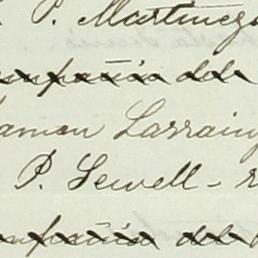 P. Martinez
compañia del
amon Larrain
P. Sewell - r
mpañia del